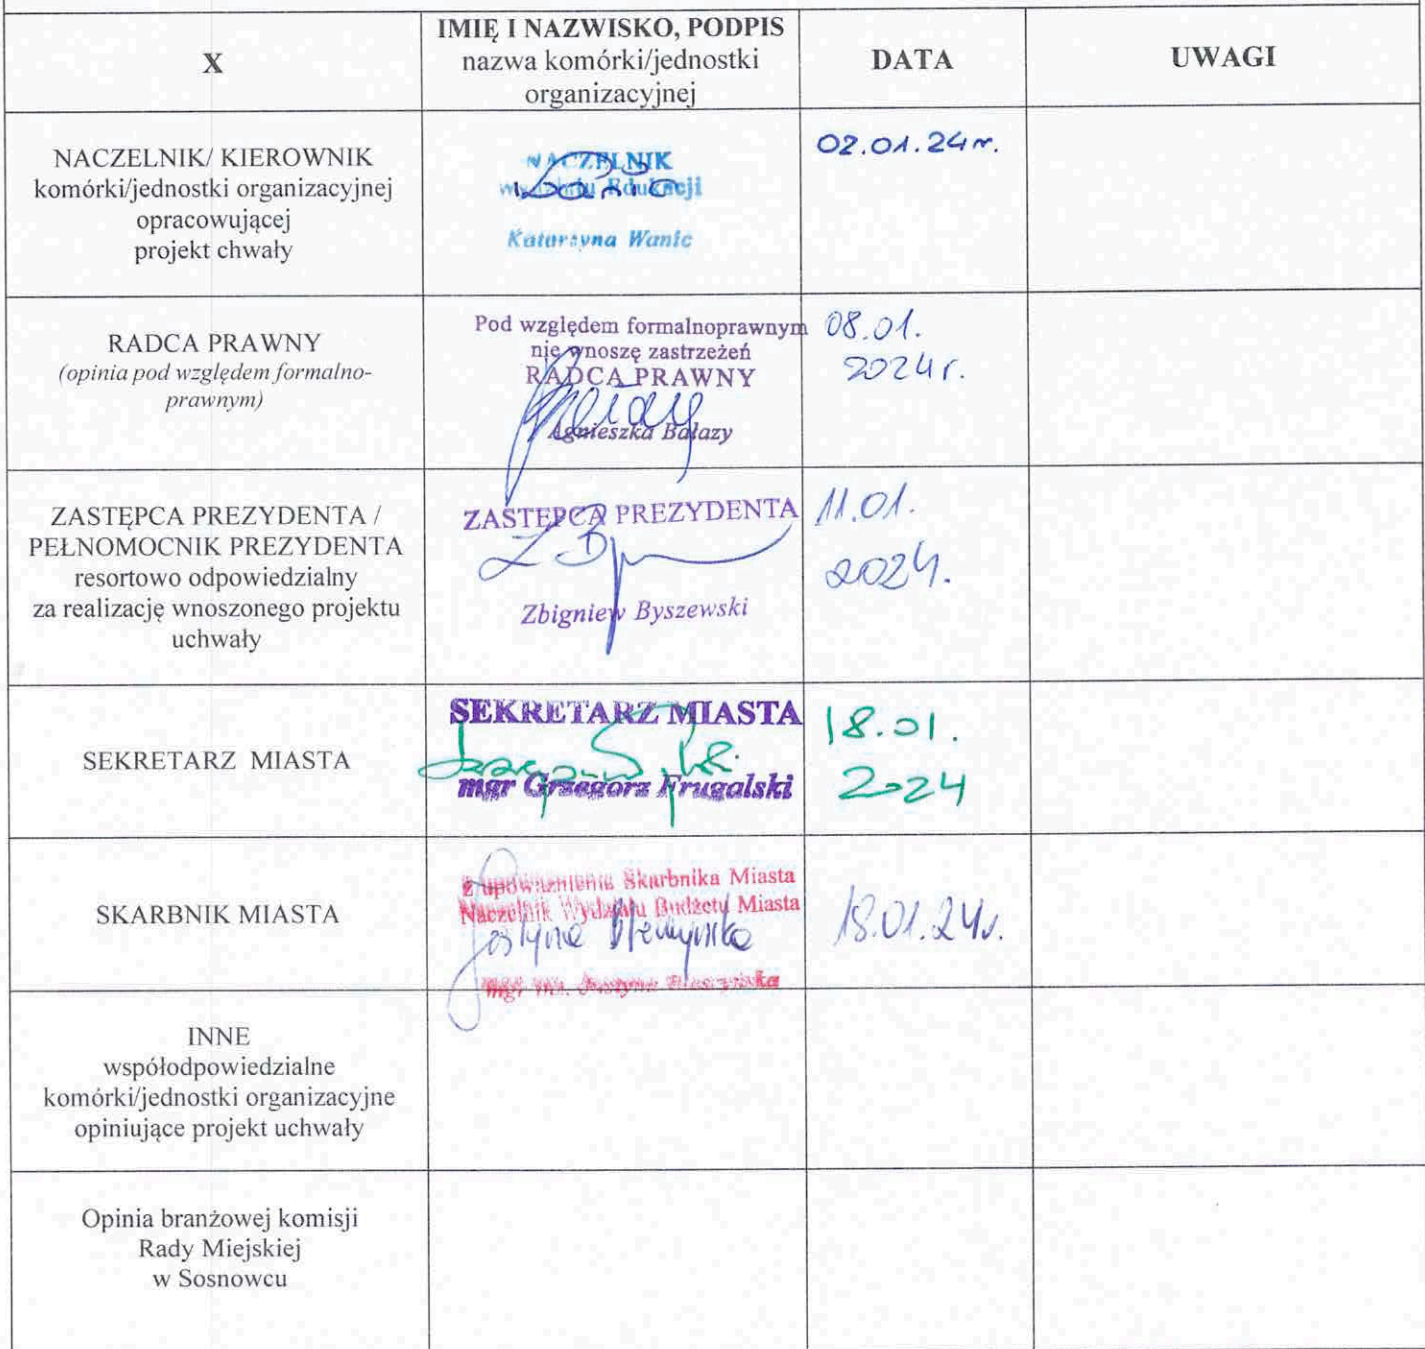 X
IMIĘ I NAZWISKO, PODPIS
nazwa komórki/jednostki
organizacyjnej
DATA
UWAGI
NACZELNIK/ KIEROWNIK
komórki/jednostki organizacyjnej
opracowującej
projekt chwały
NACZELNIK
Wydziału Edukacji
Katarzyna Wanic
02.01.24r.
RADCA PRAWNY
(opinia pod względem formalno-
prawnym)
Pod względem formalnoprawnym
nie wnoszę zastrzeżeń
RADCA PRAWNY
Agnieszka Bałazy
08.01.
2024r.
ZASTĘPCA PREZYDENTA /
PEŁNOMOCNIK PREZYDENTA
resortowo odpowiedzialny
za realizację wnoszonego projektu
uchwały
ZASTĘPCA PREZYDENTA
Zbigniew Byszewski
11.01.
2024.
SEKRETARZ MIASTA
SEKRETARZ MIASTA
mgr Grzegorz Frugalski
18.01.
2024
SKARBNIK MIASTA
Z upoważnienia Skarbnika Miasta
Naczelnik Wydziału Budżetu Miasta
mgr inż. Justyna
18.01.24r.
INNE
współodpowiedzialne
komórki/jednostki organizacyjne
opiniujące projekt uchwały
Opinia branżowej komisji
Rady Miejskiej
w Sosnowcu